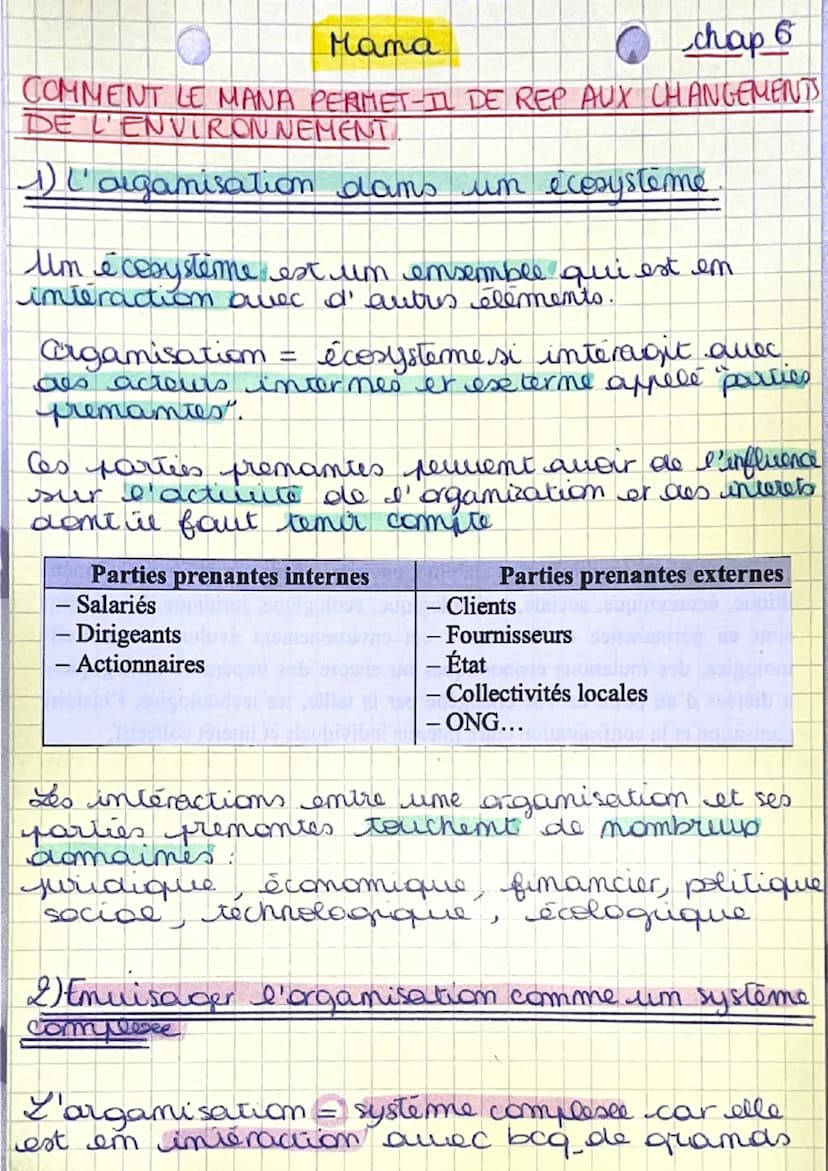 Mana
chap 6
COMMENT LE MANA PERMET-IL DE REP AUX CHANGEMENTS
DE L'ENVIRONNEMENT.
1) L'organisation dans un écosystème.
Un écosystème est un ensemble qui est en
intéraction avec d'autres éléments.
Organisation = écosysteme si intéragit avec
des acteurs internes et externe appelé "parties
prenantes".
Ces parties prenantes peuvent avoir de l'influence
sur l'activité de l'organization et des interets
dont il faut tenir compte
Parties prenantes internes
– Salariés
– Dirigeants
– Actionnaires
Parties prenantes externes
– Clients
– Fournisseurs
– État
– Collectivités locales
– ONG...
Les intéractions entre une organisation et ses
parties prenantes touchent de nombreux
domaines :
juridique, économique, financier, politique
social, téchnologique, écologique
2) Envisager l'organisation comme un système
complexe
L'organisation = système complexe car elle
est en intéraction avec bcq de grands